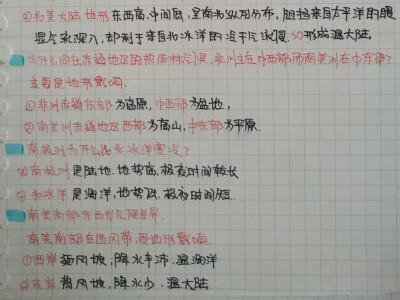 ②北美大陆地形东西高、中间低,呈南北纵列分布,阻挡来自太平洋的暖
湿气流深入,却利于来自北冰洋的冷干气流,SO形成温大陆
同在赤道地区的热雨林, 非洲主在中西部而南美州在中东部?
主要是地形影响.
①非洲赤道东部为高原,中西部为盆地,
②南美洲赤道地区西部为高山,中东部为平原.
南极洲为什么比北冰洋更冷?
①南极洲是陆地.地势高.极夜时间较长
②北冰洋是海洋,地势低.极夜时间短.
南美南部东西岸气候差异.
南美南部在西风带,受地形影响.
①西岸 迎风坡,降水丰沛.温海洋
②东岸 背风坡,降水少.温大陆